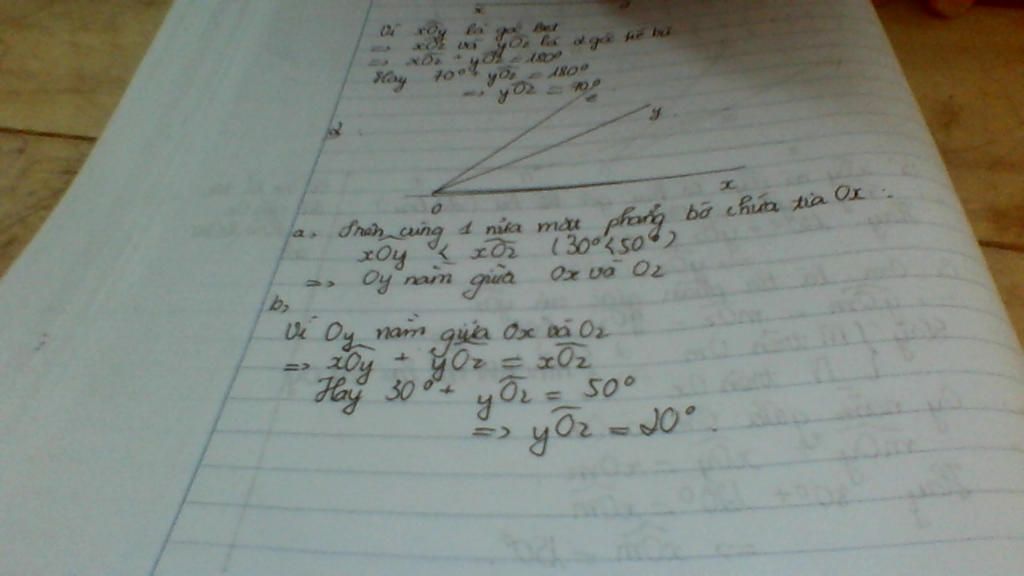 x
Vì xOy là góc bẹt
=> xOz và yOz là 2 góc kề bù
=> xOz + yOz = 180°
Hay 70° + yOz = 180°
=> yOz =
2
z
y
x
O
a, Trên cùng 1 nửa mặt phẳng bờ chứa tia Ox :
xOy < xOz (30° < 50°)
=> Oy nằm giữa Ox và Oz
b,
Vì Oy nằm giữa Ox và Oz
=> xOy + yOz = xOz
Hay 30° + yOz = 50°
=> yOz = 20°.